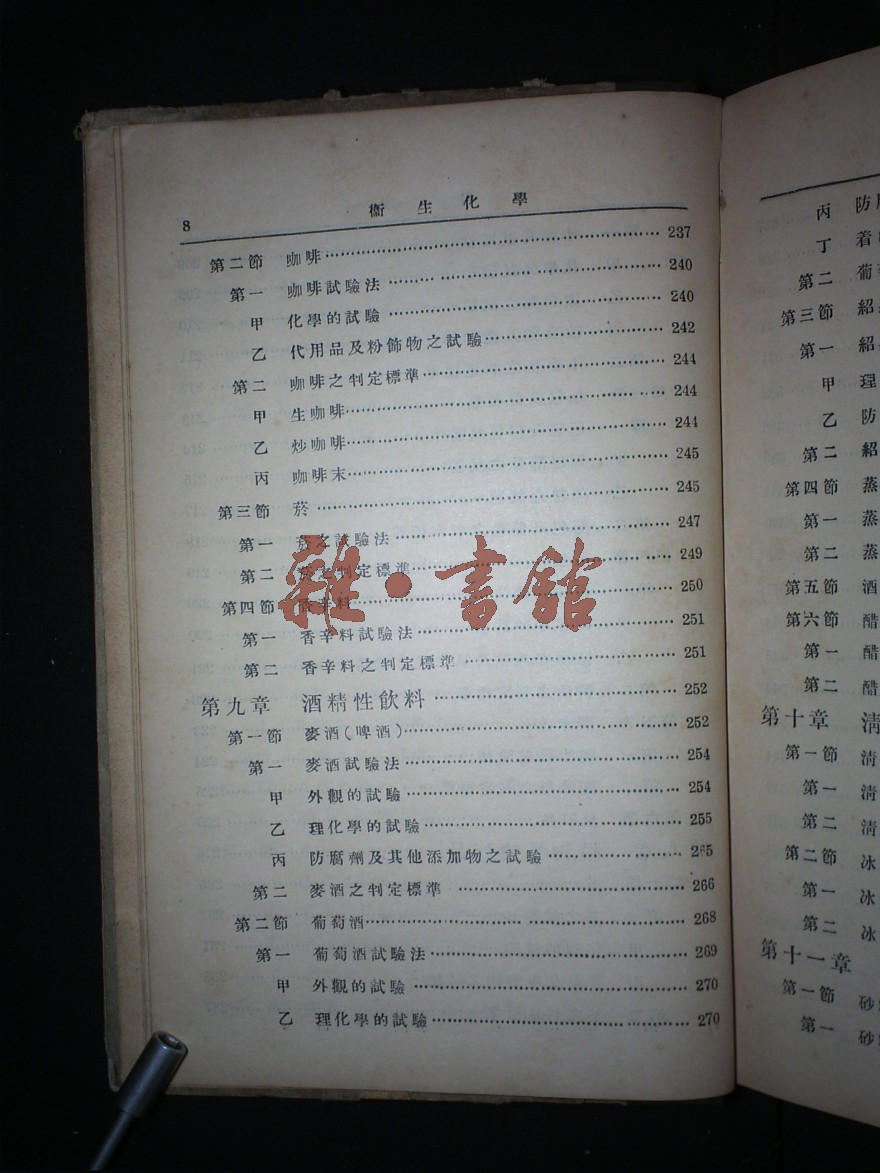 8
衞生化學
第二節 咖啡 237
第一 咖啡試驗法 240
甲 化學的試驗 240
乙 代用品及粉飾物之試驗 242
第二 咖啡之判定標準 244
甲 生咖啡 244
乙 炒咖啡 244
丙 咖啡末 245
第三節 菸 245
第一 菸之試驗法 247
第二 菸之判定標準 249
第四節 香辛料 250
第一 香辛料試驗法 251
第二 香辛料之判定標準 251
第九章 酒精性飲料 252
第一節 麥酒(啤酒) 252
第一 麥酒試驗法 254
甲 外觀的試驗 254
乙 理化學的試驗 255
丙 防腐劑及其他添加物之試驗 265
第二 麥酒之判定標準 266
第二節 葡萄酒 268
第一 葡萄酒試驗法 269
甲 外觀的試驗 270
乙 理化學的試驗 270
雜·書館
丙 防
丁 着
第二 葡
第三節 紹
第一 紹
甲 理
乙 防
第二 紹
第四節 蒸
第一 蒸
第二 蒸
第五節 酒
第六節 醋
第一 醋
第二 醋
第十章 淸
第一節 淸
第一 淸
第二 淸
第二節 冰
第一 冰
第二 冰
第十一章
第一節 砂
第一 砂